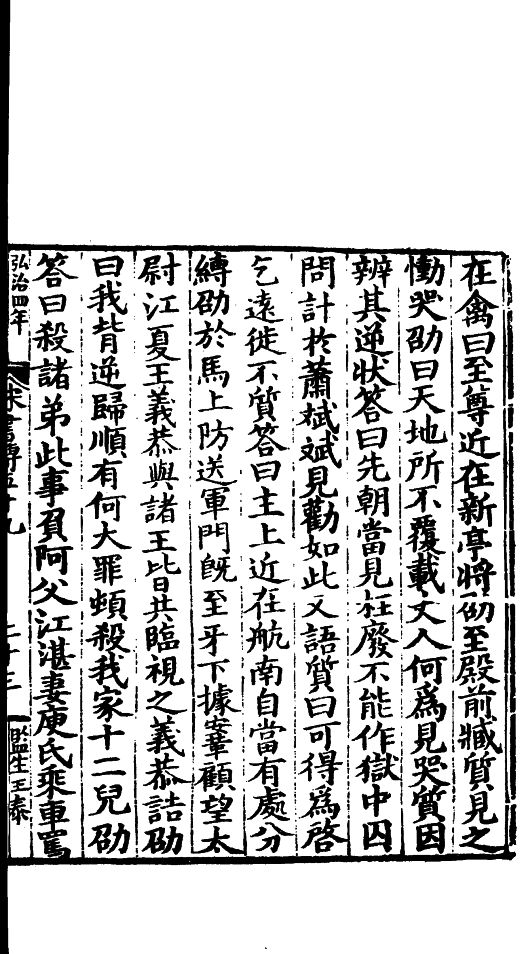 在禽曰至尊近在新亭將劭至殿前臧質見之
慟哭劭曰天地所不覆載丈人何爲見哭質因
辨其逆狀答曰先朝當見枉廢不能作獄中囚
問計於蕭斌斌見勸如此又語質曰可得爲啓
乞遠徙不質答曰主上近在航南自當有處分
縛劭於馬上防送軍門旣至牙下據鞌顧望太
尉江夏王義恭與諸王皆共臨視之義恭詰劭
曰我背逆歸順有何大罪頓殺我家十二兒劭
答曰殺諸弟此事負阿父江湛妻庾氏乘車罵
弘治四年
宋書傳五十九
二十三
監生王泰